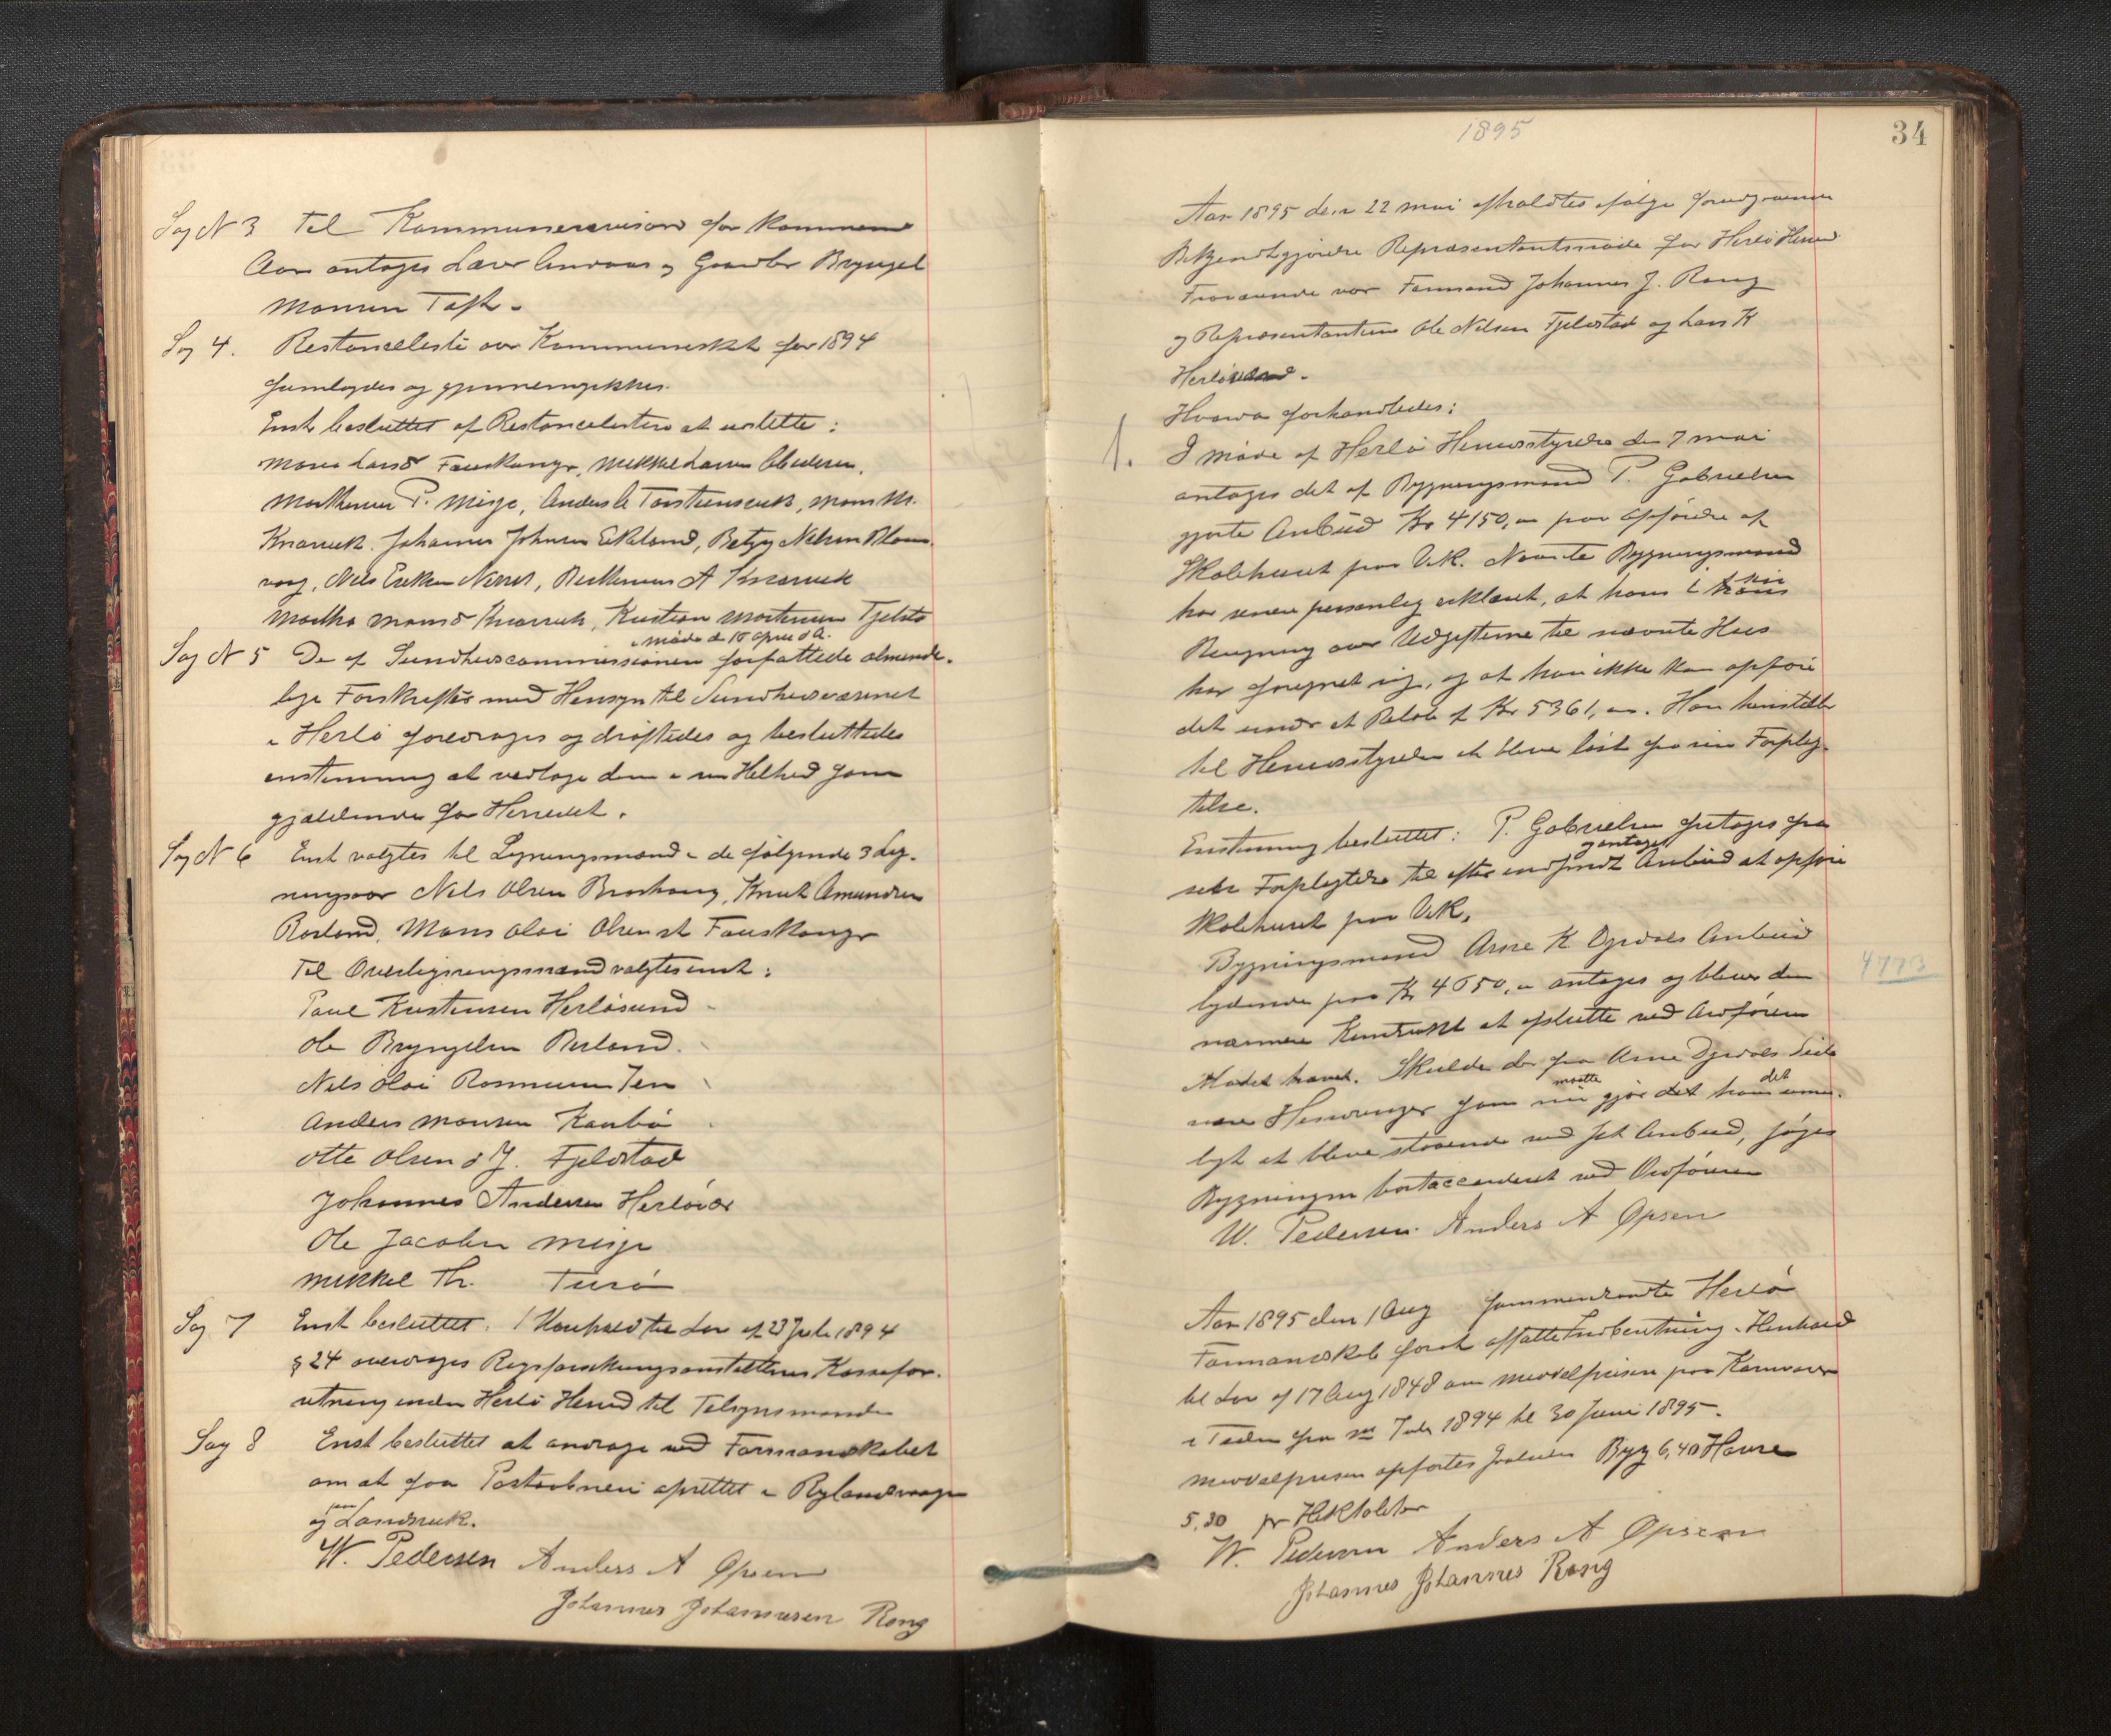 Sag N 3 Til Kommunerevisorer for kommende
Aar antages Lærer Andaas og Gaardbr Bryngel
Monsen Toft.
Sag 4. Restanceliste over Kommuneskat for 1894
fremlagdes og gjennemgikkes.
Enst besluttet af Restancelisten at udslette:
Mons Larsø Fauskanger, Mikkel Larsen
Mortensen P. Misje, Anders Torsteinsvik, Mons M.
Knarvik. Johannes Johnsen Eikeland, Betzy Nelsen Blom-
vaag, Nils Eriksen Nesset, Berthinus A Knarvik
Martha Monsd Knarvik, Kristian Mortensen Fjelsta
i Møde d 10 April d A.
Sag N 5 De af Sundhedscommissionen forfattede alminde-
lige Forskrifter med Hensyn til Sundhedsvæsenet
i Herlø foredroges og drøftedes og besluttedes
enstemmig at vedtage dem i sin Helhed som
gjældende for Herredet.
Sag N 6 Enst valgtes til Ligningsmænd i de følgende 3 Lig-
ningsaar Nils Olsen Brakhaug, Knut Amundsen
Rosland, Mons Olai Olsen Fauskanger
Til Overligningsmænd valgtes enst:
Paul Kristensen Herløsund
Ole Bryngelsen Berland.
Nils Olai Rasmussen
Anders Monsen Kaarbø
Otte Olsen d Y. Fjeldstad
Johannes Andersen Herløvær
Ole Jacobsen Misje
Mikkel Th. Turø
Sag 7 Enst besluttet. I Henhold til Lov af 27 Juli 1894
§ 24 overdrages Rigsforsikringsanstaltens Kassefor-
retning inden Herlø Herred til Tilsynsmanden
Sag 8 Enst besluttet at andrage ved Formandskabet
om at faa Postaabneri oprettet i Rylandsvaag
paa
og Landsvik.
W. Pedersen Anders A Opsen
Johannes Johannesen Rong
1895
34
Aar 1895 den 22 Mai afholdtes ifølge forudgaaende
Bekjendtgjørelse Repræsentantmøde for Herlø Herred
Fraværende var Formand Johannes J. Rong
og Repræsentanterne Ole Nilsen Fjeldstad og Lars K
Herløvær.
Hvorda forhandledes:
1. I Møde af Herlø Herredsstyrelse den 7 Mai
antages det af Bygningsmand P. Gabrielsen
gjorte Anbud Kr 4150,00 paa Opførelse af
Skolehuset paa Vik. Nævnte Bygningsmand
har senere personlig erklæret, at han i sin
Beregning over Udgifterne til nævnte Hus
har foregnet sig, og at han ikke kan opføre
det under et Beløb af Kr 5361,00. Han henstiller
til Herredsstyrelsen at blive løst fra sin Forplig-
telse.
Enstemmig besluttet: P. Gabrielsen fritages fra
og antaget
sin Forpligtelse til efter indsendt Anbud at opføre
Skolehuset paa Vik.
Bygningsmand Arne K Dyrdals Anbud
lydende paa Kr 4650,00 antages og bliver den
nærmere Kontrakt at afslutte ved Ordføreren
4773
Mødet hævet. Skulde der fra Arne Dyrdals Side
maatte det
være Hindringer som gjør det ham umu-
ligt at blive staaende ved sit Anbud, søges
Bygningen bortaccorderet ved Ordføreren
W. Pedersen Anders A Opsen
Aar 1895 den 1 Aug sammentraadte Herlø
Formandskab forat affatte Indberetning i Henhold
til Lov af 17 Aug 1848 om Middelprisen paa Kornvarer
i Tiden fra 1ste Juli 1894 til 30 Juni 1895.
Middelprisen opførtes saaledes Byg 6,40 Havre
5,30 pr Hektoliter
W. Pedersen Anders A Opsen
Johannes Johannes Rong